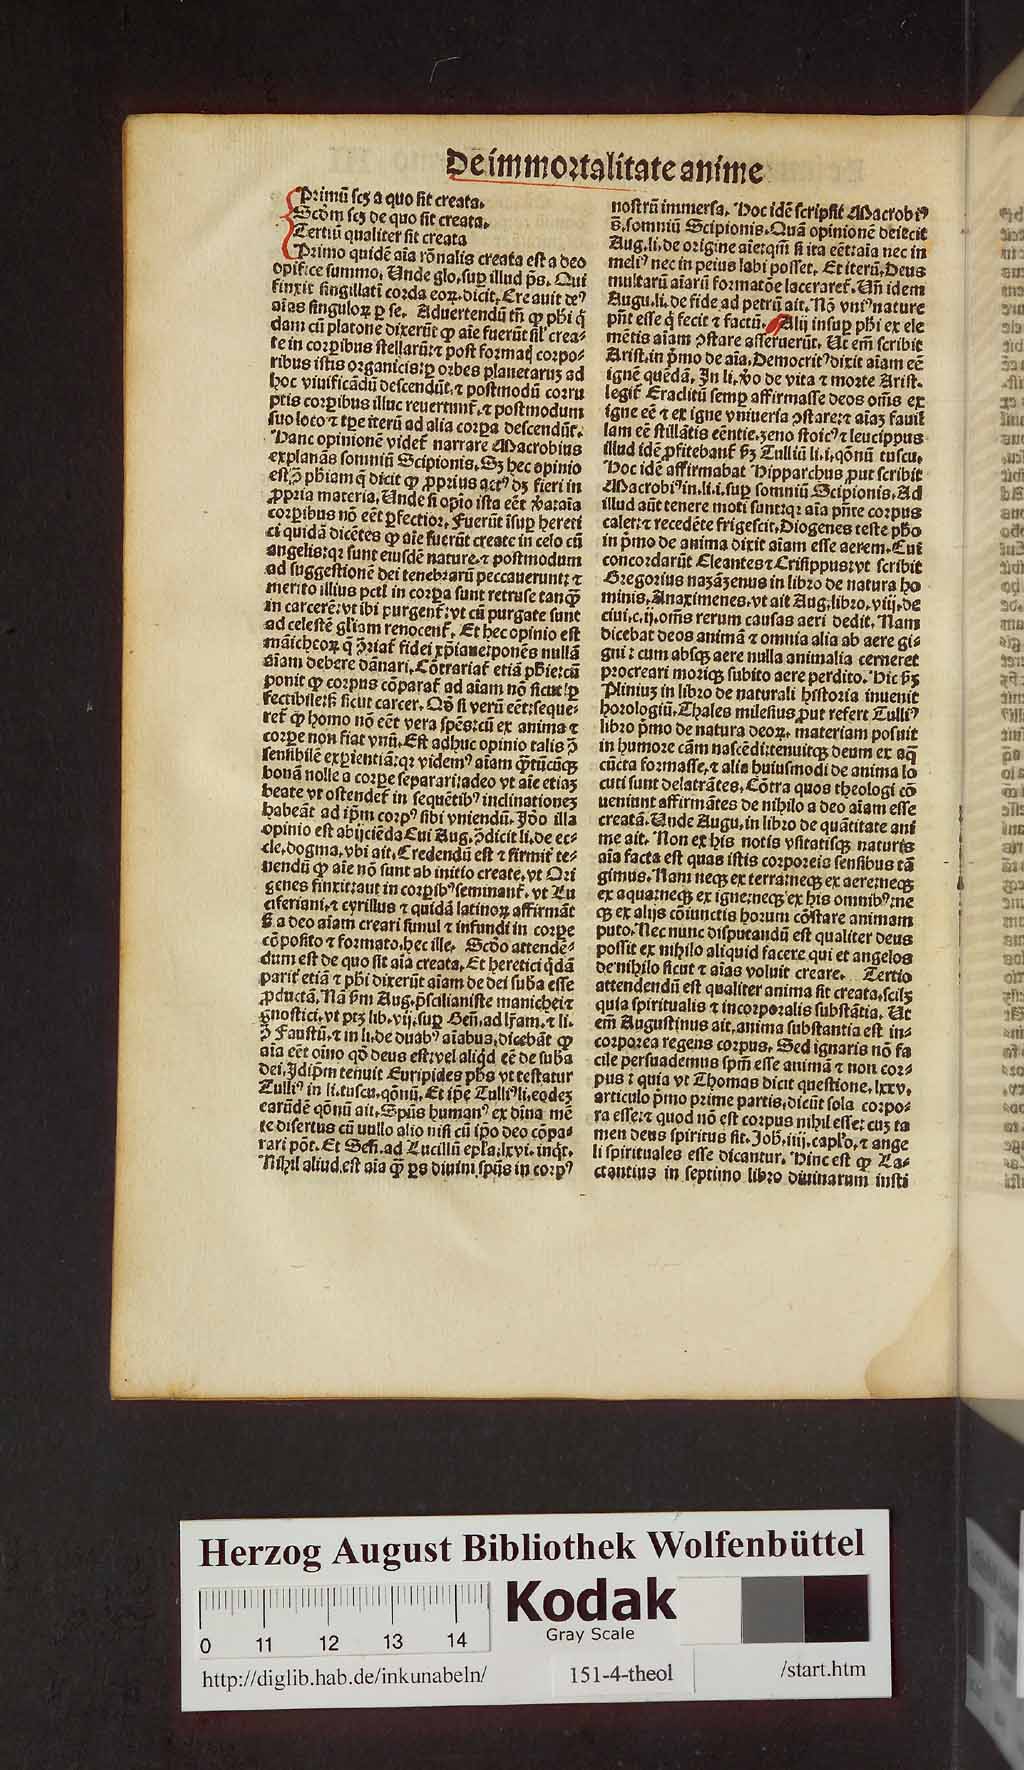 De immortalitate anime
Primū scꝫ a quo sit creata.
Scdm scꝫ de quo sit creata.
Tertiū qualiter sit creata
Primo quidē aīa rōnalis creata est a deo
opifice summo. Unde glo. suꝑ illud ps̄. Qui
finxit singillatī corda eoꝝ. dicit. Creauit deꝰ
aīas singuloꝝ ꝑ se. Aduertendū tn̄ ꝙ phi q̇
dam cū platone dixerūt ꝙ aīe fuerūt sil' crea-
te in corꝑibus stellarū: ⁊ post formaꝗ corpo-
ribus istis organicis: ꝑ orbes planetaruꝫ ad
hoc viuificādū descendūt. ⁊ postmodū corru
ptis corꝑibus illuc reuertunt̄. ⁊ postmodum
suo loco ⁊ tꝑe iterū ad alia corꝑa descendūt.
Hanc opinionē videt̄ narrare Macrobius
explanās somniū Scipionis. Sꝫ hec opinio
est ꝯ̄ phiam q̇ dicit ꝙ ꝓprius actꝰ dꝫ fieri in
ꝓpria materia. Unde si opīo ista eēt ꝟa: aīa
corꝑibus nō eēt ꝑfectior. Fuerūt īsuꝑ hereti
ci quidā dicētes ꝙ aīe fuerūt create in celo cū
angelis: qꝛ sunt eiusdē nature. ⁊ postmodum
ad suggestionē dei tenebrarū peccauerunt: ⁊
merito illius pctī in corꝑa sunt retruse tanꝙ̄
in carcerē: vt ibi purgent̄: vt cū purgate sunt
ad celestē gl'iam reuocent̄. Et hec opinio est
māicheoꝝ q̇ ꝯ̄riat̄ fidei xp̄iane: ponēs nullā
aīam debere dānari. Cōtrariat̄ etiā phīe: cū
ponit ꝙ corpus cōparat̄ ad aīam nō sicut ꝑ
fectibile: sꝫ sicut carcer. Qd̄ si verū eēt: seque-
ret̄ ꝙ homo nō eēt vera spēs: cū ex anima ⁊
corꝑe non fiat vnū. Est adhuc opinio talis ꝯ̄
sensibilē exꝑientiā: qꝛ videmꝰ aīam ꝙ̄tūcūqꝫ
bonā nolle a corꝑe separari: adeo vt aīe etiaꝫ
beate vt ostendet̄ in sequētibꝰ inclinationeꝫ
habeāt ad ipm̄ corpꝰ sibi vniendū. Idō illa
opinio est abijciēda Cui Aug. ꝯ̄dicit li. de ec-
cle. dogma. vbi ait. Credendū est ⁊ firmit̄ te-
nendū ꝙ aīe nō sunt ab initio create. vt Ori
genes finxit: aut in corꝑibꝰ seminant̄. vt Lu
ciferiani. ⁊ cyrillus ⁊ quidā latinoꝝ affirmāt
sꝫ a deo aīam creari simul ⁊ infundi in corꝑe
cōposito ⁊ formato. hec ille. Scdo attendē-
dum est de quo sit aīa creata. Et heretici q̇dā
parit̄ etiā ⁊ phi dixerūt aīam de dei suba esse
ꝓductā. Nā sm̄ Aug. p̄scilianiste manichei ⁊
gnostici. vt ptꝫ lib. vij. suꝑ Gen̄. ad lr̄am. ⁊ li.
ꝯ̄ Faustū. ⁊ in li. de duabꝰ aīabus. dicebāt ꝙ
aīa eēt oīno qd̄ deus est: vel aliq̇d eē de suba
dei. Idip̄m tenuit Euripides phs vt testatur
Tulliꝰ in li. tuscu. qōnū. Et ip̄e Tulliꝰ li. eodeꝫ
earūdē qōnū ait. Spūs humanꝰ ex diuina mē
te disertus cū vullo alio nisi cū ip̄o deo cōpa-
rari pōt. Et Sen̄. ad Lucillū epl'a. lxvi. inq̇t.
Nihil aliud est aīa ꝙ̄ ꝑs diuini spūs in corpꝰ
nostrū immersa. Hoc idē scripsit Macrobiꝰ
s̄. somniū Scipionis. Quā opinionē deiecit
Aug. li. de origine aīe: qm̄ si ita eēt: aīa nec in
meliꝰ nec in peius labi posset. Et iterū. Deus
multarū aīarū formatōe laceraret̄. Un̄ idem
Augu. li. de fide ad petrū ait. Nō vniꝰ nature
pn̄t esse q̇ fecit ⁊ factū. Alij insuꝑ phi ex ele
mētis aīam ꝯstare asseruerūt. Ut em̄ scribit
Arist. in p̄mo de aīa. Democritꝰ dixit aīam eē
ignē quēdā. In li. ꝟo de vita ⁊ morte Arist.
legit̄ Eraditū semꝑ affirmasse deos om̄s ex
igne eē ⁊ ex igne vniueria ꝯstare: ⁊ aīaꝫ fauil
lam eē stillātis eēntie. zeno stoicꝰ ⁊ leucippus
illud idē ꝓfitebant̄ sꝫ Tulliū li. i. qōnū tuscu.
Hoc idē affirmabat Hipparchus ꝓut scribit
Macrobiꝰ in. li. i. suꝑ somniū Scipionis. Ad
illud aūt tenere moti sunt: qꝛ aīa pn̄te corpus
calet: ⁊ recedēte frigescit. Diogenes teste pho
in p̄mo de anima dixit aīam esse aerem. Cui
concordarūt Cleantes ⁊ Crisippus: vt scribit
Gregorius nazāzenus in libro de natura ho
minis. Anaximenes. vt ait Aug. libro. viij. de
ciui. c. ij. om̄s rerum causas aeri dedit. Nam
dicebat deos animā ⁊ omnia alia ab aere gi-
gni: cum absqꝫ aere nulla animalia cerneret
procreari moriqꝫ subito aere perdito. Hic sꝫ
Pliniuꝫ in libro de naturali historia inuenit
horologiū. Thales milesius ꝓut refert Tulliꝰ
libro p̄mo de natura deoꝝ. materiam posuit
in humore cām nascēdi: tenuitqꝫ deum ex aq̄
cūcta formasse. ⁊ alia huiusmodi de anima lo
cuti sunt delatrātes. Cōtra quos theologi cō
ueniunt affirmātes de nihilo a deo aīam esse
creatā. Unde Augu. in libro de quātitate ani
me ait. Non ex his notis vsitatisqꝫ naturis
aīa facta est quas istis corporeis sensibus tā
gimus. Nam neqꝫ ex terra: neqꝫ ex aere: neqꝫ
ex aqua: neqꝫ ex igne: neqꝫ ex his omnibꝰ: ne
qꝫ ex alijs cōiunctis horum cōstare animam
puto. Nec nunc disputandū est qualiter deus
possit ex nihilo aliquid facere qui et angelos
de nihilo sicut ⁊ aīas voluit creare. Tertio
attendendū est qualiter anima sit creata. scilꝫ
quia spiritualis ⁊ incorporalis substātia. Ut
em̄ Augustinus ait. anima substantia est in-
corporea regens corpus. Sed ignaris nō fa
cile persuademus spm̄ esse animā ⁊ non cor-
pus: quia vt Thomas dicit questione. lxxv.
articulo p̄mo prime partis. dicūt sola corpo-
ra esse: ⁊ quod nō est corpus nihil esse: cuꝫ ta
men deus spiritus sit. Joh̄. iiij. capl'o. ⁊ ange
li spirituales esse dicantur. Hinc est ꝙ La-
ctantius in septimo libro diuinarum insti
Herzog August Bibliothek Wolfenbüttel
0 11 12 13 14
Kodak
Gray Scale
http://diglib.hab.de/inkunabeln/ 151-4-theol /start.htm